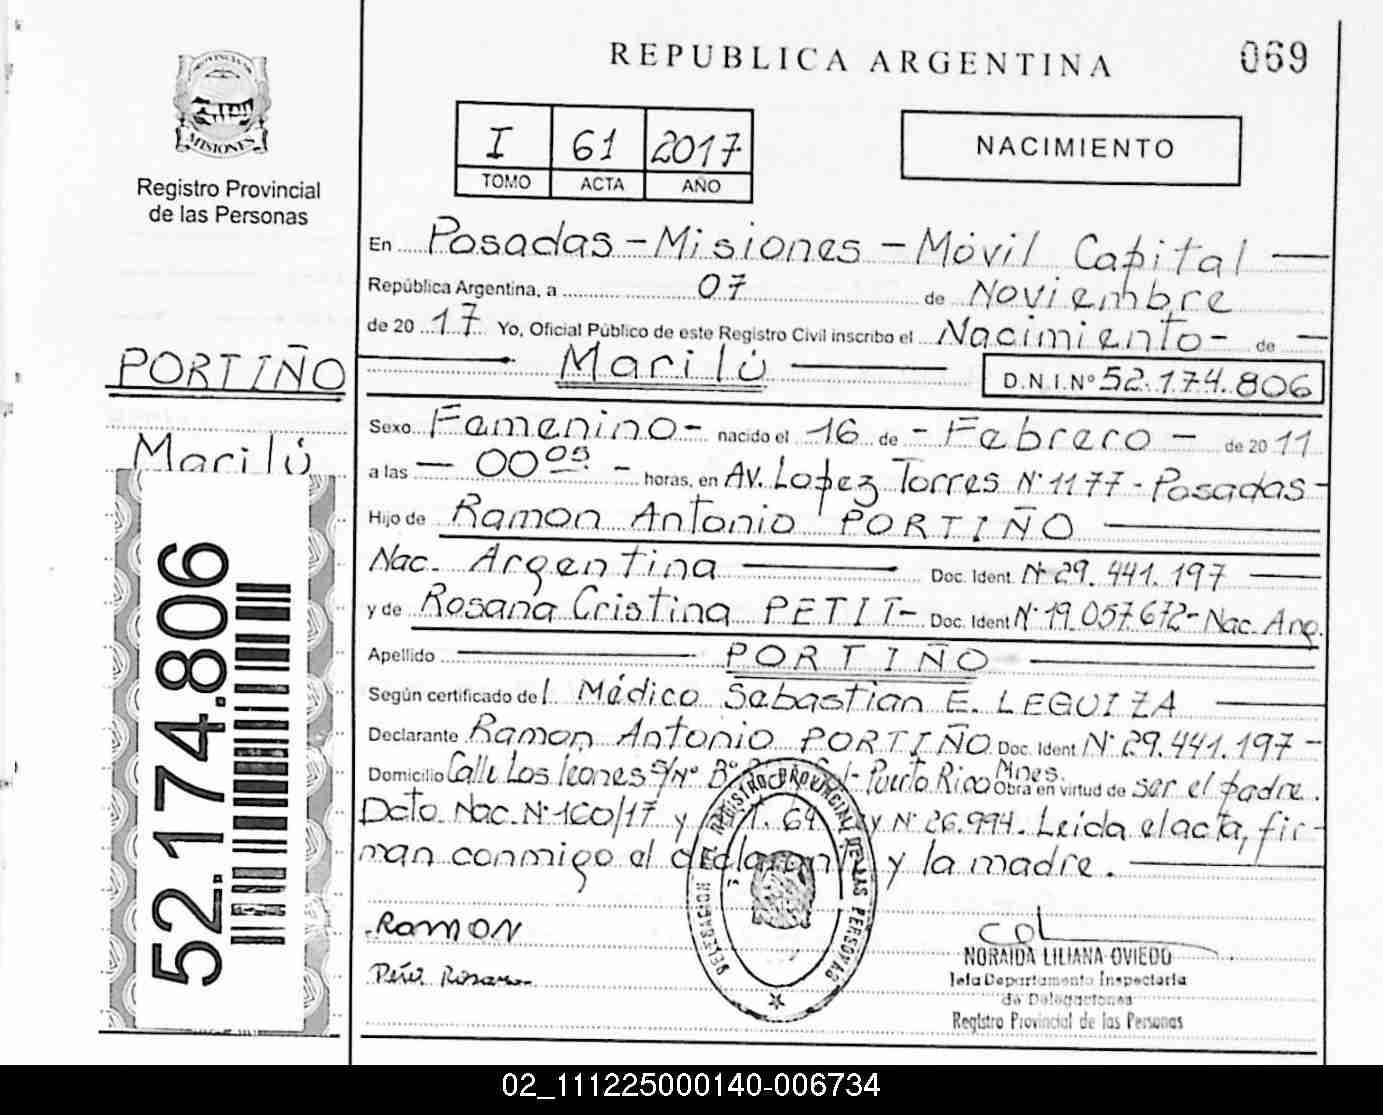 PROVINCIA DE
MISIONES
Registro Provincial
de las Personas
PORTIÑO
Marilú
52.174.806
REPUBLICA ARGENTINA
069
I 61 2017
TOMO ACTA AÑO
NACIMIENTO
En Posadas - Misiones - Móvil Capital
República Argentina, a 07 de Noviembre
de 2017 Yo, Oficial Público de este Registro Civil inscribo el Nacimiento - de
Marilú D.N.I.Nº 52.174.806
Sexo Femenino - nacido el 16 de - Febrero - de 2011
a las - 00 05 - horas, en Av. Lopez Torres Nº 1177 - Posadas -
Hijo de Ramon Antonio PORTIÑO
Nac. Argentina Doc. Ident. Nº 29.441.197
y de Rosana Cristina PETIT - Doc. Ident Nº 19.057.672 - Nac. Arg.
Apellido PORTIÑO
Según certificado del Médico Sebastian E. LEGUIZA
Declarante Ramon Antonio PORTIÑO Doc. Ident Nº 29.441.197 -
Domicilio Calle Los leones S/Nº Bº - Puerto Rico Mnes. Obra en virtud de ser el padre.
Dcto Nac. Nº 160/17 y 64 y Nº 26.994. Leida el acta, fir-
man conmigo el declarante y la madre.
RAMON
DELEGACION REGISTRO PROVINCIAL DE LAS PERSONAS
NORAIDA LILIANA OVIEDO
Jefa Departamento Inspectoria
de Delegaciones
Registro Provincial de las Personas
02_111225000140-006734